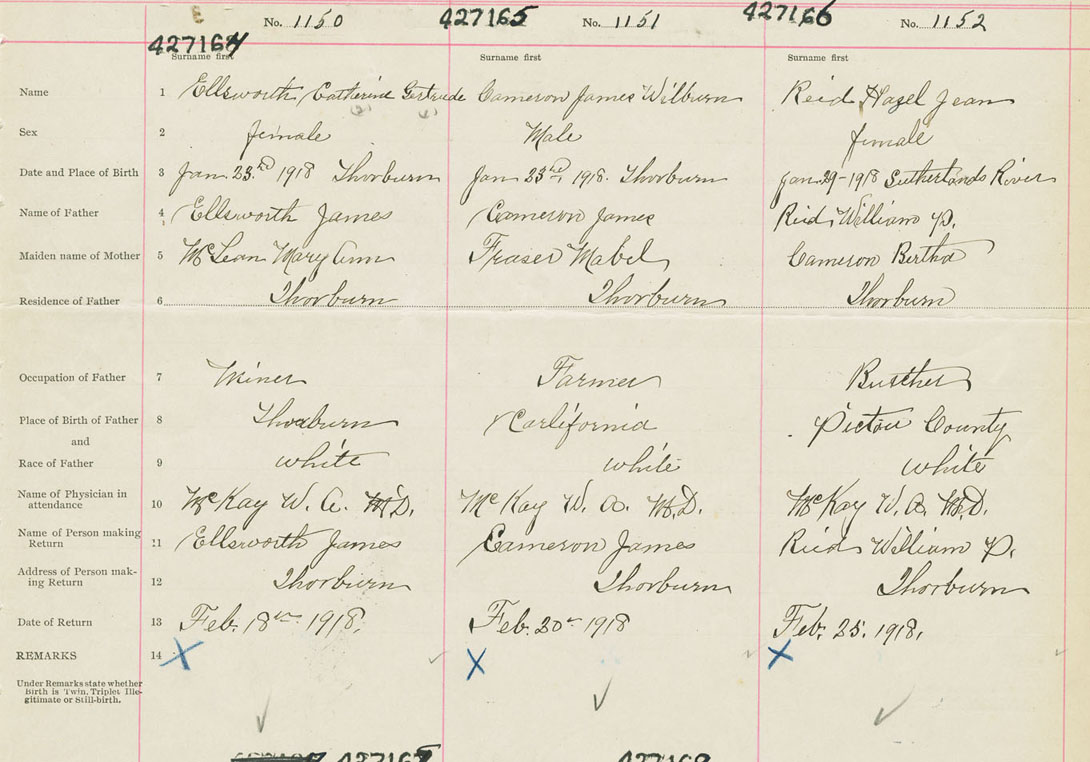 No. 1150 427165 No. 1151 427166 No. 1152
427164
Surname first Surname first Surname first
Name 1 Ellsworth Catherine Gertrude Cameron James Wilburn Reid Hazel Jean
Sex 2 female Male female
Date and Place of Birth 3 Jan 23rd 1918 Thorburn Jan 23rd 1918. Thorburn Jan 29-1918 Sutherlands River
Name of Father 4 Ellsworth James Cameron James Reid William P.
Maiden name of Mother 5 McLean Mary Ann Fraser Mabel Cameron Bertha
Residence of Father 6 Thorburn Thorburn Thorburn
Occupation of Father 7 Miner Farmer Butcher
Place of Birth of Father 8 Thorburn Carlifornia Pictou County
and
Race of Father 9 white white white
Name of Physician in attendance 10 McKay W. A. M.D. McKay W. A. M.D. McKay W. A. M.D.
Name of Person making Return 11 Ellsworth James Cameron James Reid William P.
Address of Person mak-ing Return 12 Thorburn Thorburn Thorburn
Date of Return 13 Feb. 18th 1918. Feb. 20th 1918 Feb. 25. 1918.
REMARKS 14 X X X
Under Remarks state whether
Birth is Twin, Triplet Ille-
gitimate or Still-birth.